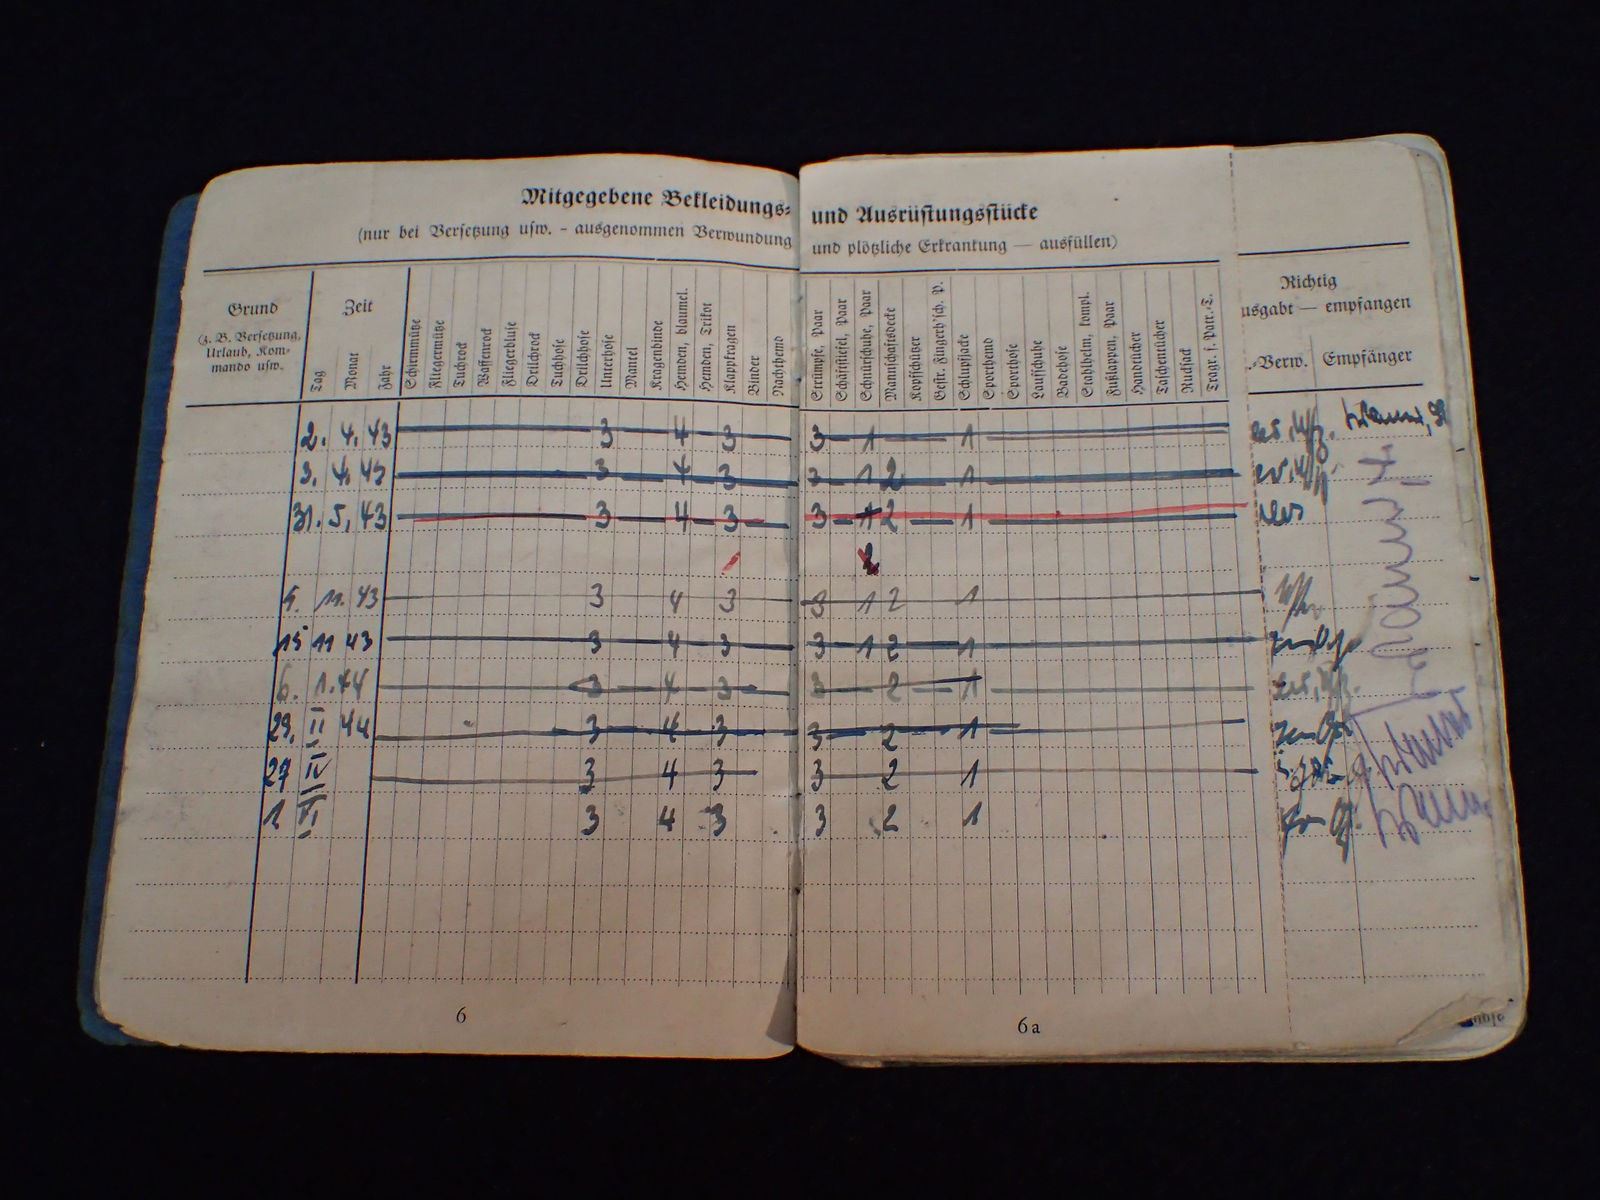 Mitgegebene Bekleidungs- und Ausrüstungsstücke
(nur bei Versetzung usw. - ausgenommen Verwundung und plötzliche Erkrankung — ausfüllen)
Grund
(z. B. Versetzung, Urlaub, Kom-
mando usw.
Zeit
Tag
Monat
Jahr
Schirmmütze
Fliegermütze
Tuchrock
Waffenrock
Fliegerbluse
Drillichrock
Tuchhose
Drillichhose
Unterhose
Mantel
Kragenbinde
Hemden, blaumel.
Hemden, Trikot
Klappkragen
Binder
Nachthemd
Strümpfe, Paar
Schaftstiefel, Paar
Schnürschuhe, Paar
Mannschaftsdecke
Kopfschützer
Gestr. Fingerh'sch. P.
Schlupfjacke
Sporthemd
Sporthose
Laufschuhe
Badehose
Stahlhelm, kompl.
Fußlappen, Paar
Handtücher
Taschentücher
Rucksack
Tragr. f. Patr.-T.
Richtig
usgabt — empfangen
.-Verw. Empfänger
2. 4. 43 3 4 3 3 1 1
3. 4. 43 3 4 3 3 1 2 1
31. 5. 43 3 4 3 3 1 2 1
11. 43 3 4 3 3 1 2 1
15 11 43 3 4 3 3 1 2 1
6. 1. 44 3 4 3 3 2 1
29. II 44 3 4 3 3 2 1
27 IV 3 4 3 3 2 1
1 VI 3 4 3 3 2 1
6
6a